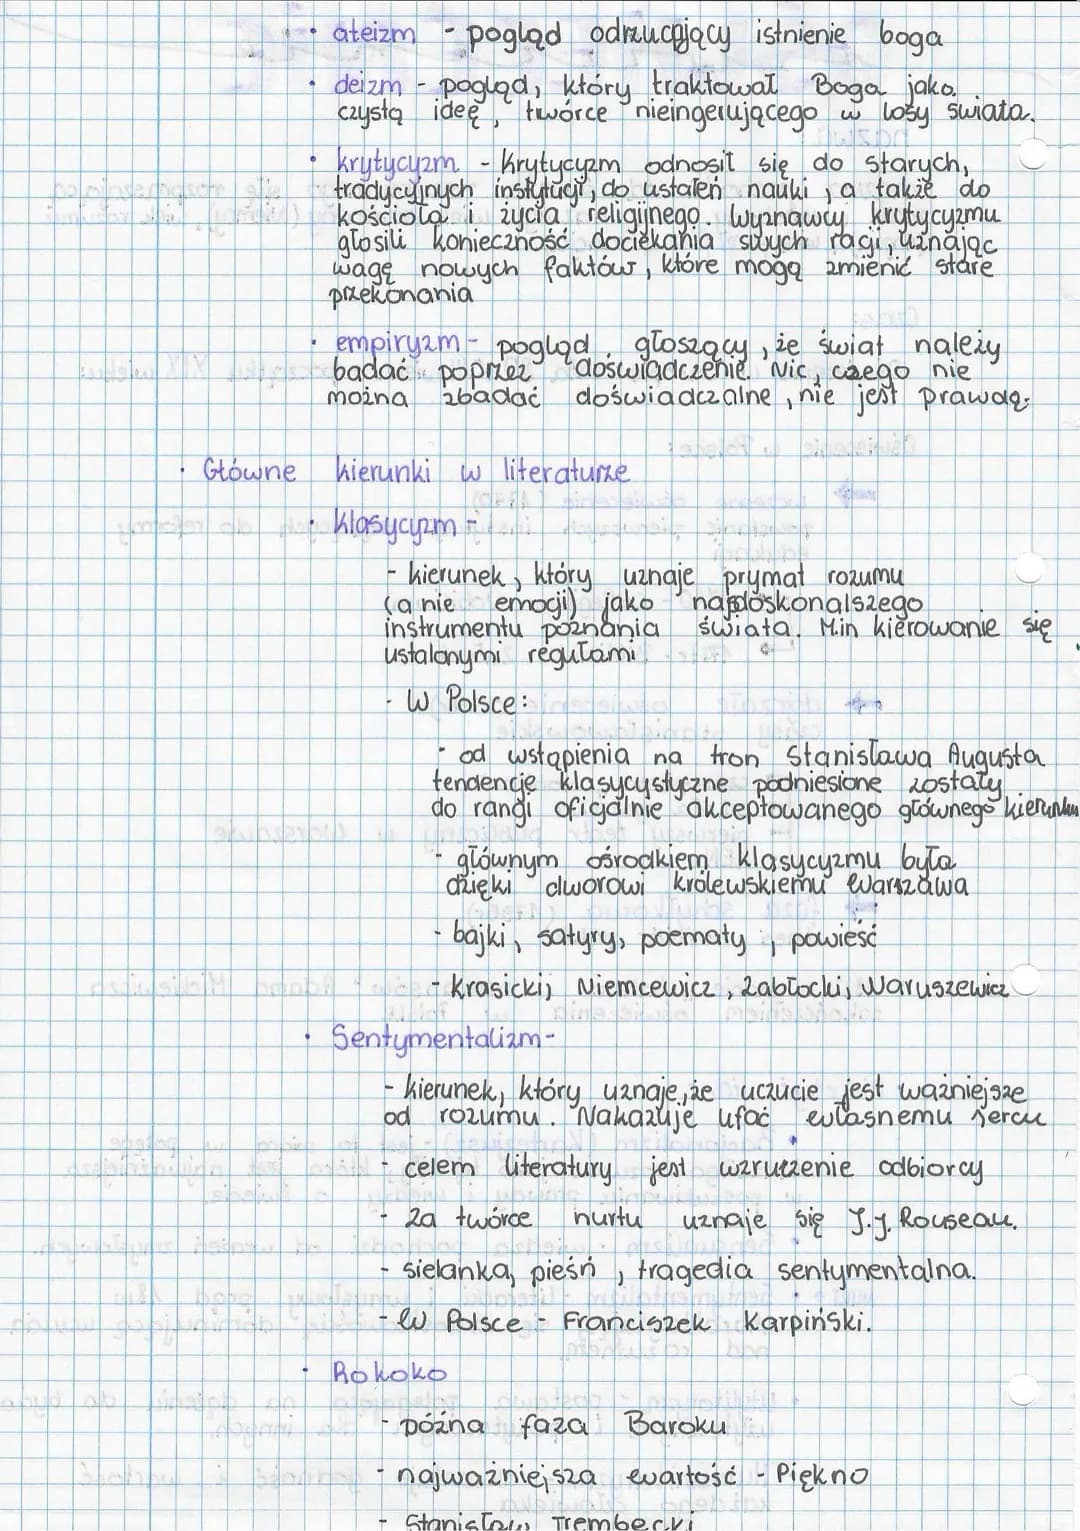 • ateizm - pogląd odrzucający istnienie boga
• deizm - pogląd, który traktował Boga jako
czystą ideę, twórce nieingerującego w losy świata.
• krytycyzm - Krytycyzm odnosił się do starych,
tradycyjnych instytucji, do ustaleń nauki, a także do
kościoła i życia religijnego. Wyznawcy krytycyzmu
głosili konieczność dociekania swych racji, uznając
wagę nowych faktów, które mogą zmienić stare
przekonania
• empiryzm - pogląd głoszący, że świat należy
badać poprzez doświadczenie. Nic, czego nie
można zbadać doświadczalne, nie jest prawdą.
• Główne kierunki w literaturze
• klasycyzm -
- kierunek, który uznaje prymat rozumu
(a nie emocji) jako najdoskonalszego
instrumentu poznania świata. M.in kierowanie się
ustalonymi regułami
- W Polsce:
• od wstąpienia na tron Stanisława Augusta
tendencje klasycystyczne podniesione zostały
do rangi oficjalnie akceptowanego głównego kierunku
- głównym ośrodkiem klasycyzmu była
dzięki dworowi królewskiemu Warszawa
- bajki, satyry, poematy, powieść
- Krasicki, Niemcewicz, Zabłocki, Waruszewicz
• Sentymentalizm -
- kierunek, który uznaje, że uczucie jest ważniejsze
od rozumu. Nakazuje ufać własnemu sercu
- celem literatury jest wzruszenie odbiorcy
- Za twórce nurtu uznaje się J.J. Rouseau.
- sielanka, pieśń, tragedia sentymentalna.
- W Polsce - Franciszek Karpiński.
• Rokoko
- późna faza Baroku
- najważniejsza wartość - Piękno
- Stanisław Trembecki